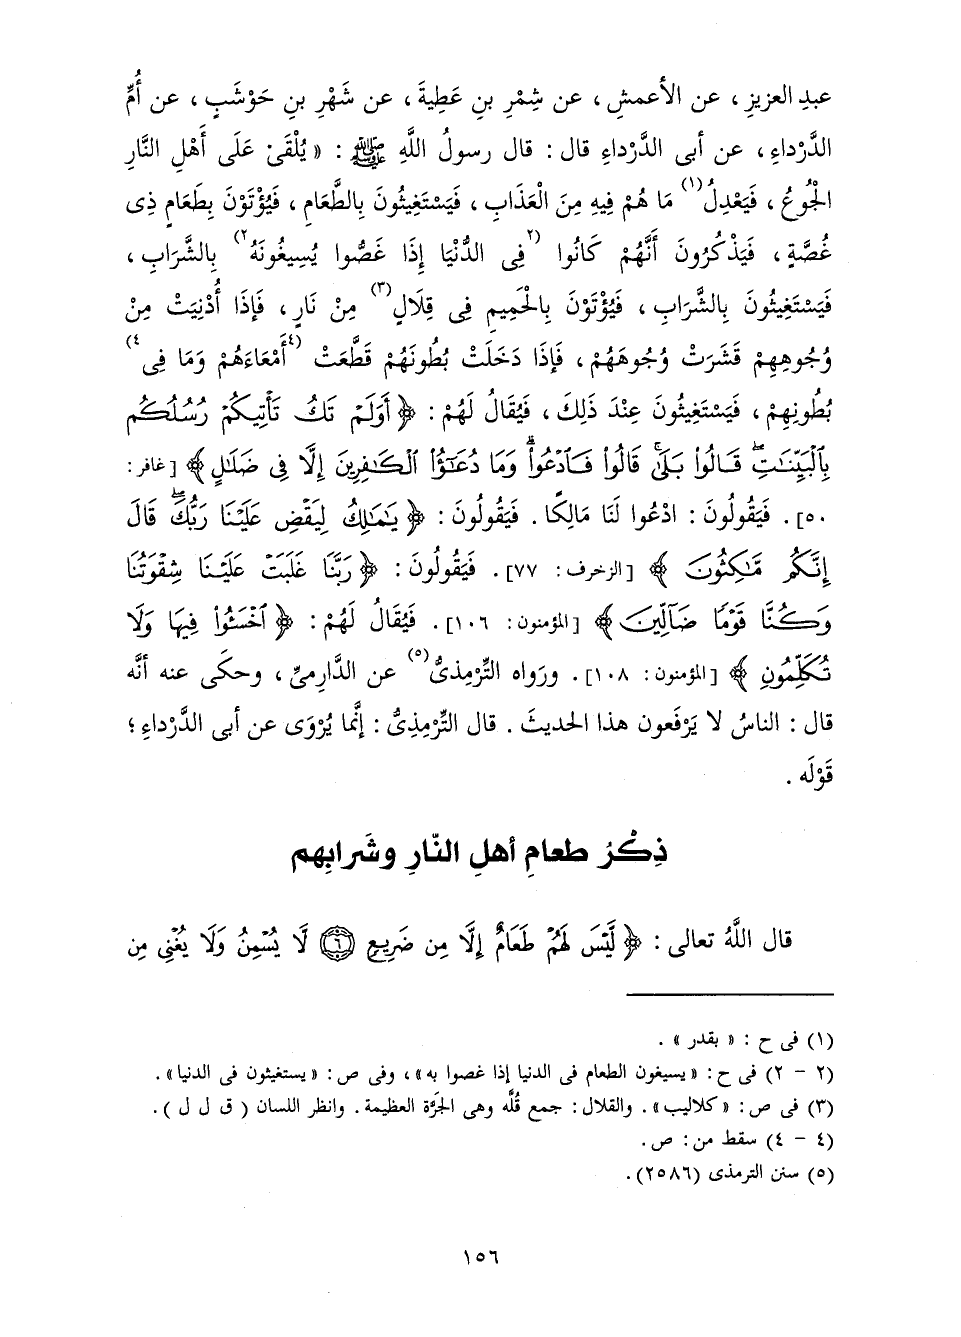 عبدِ العزيزِ، عن الأعمشِ، عن شِمْرِ بنِ عَطِيةَ، عن شَهْرِ بنِ حَوْشَبٍ، عن أُمِّ
الدَّرْداءِ، عن أبى الدَّرْداءِ قال: قال رسولُ اللَّهِ ﷺ: «يُلْقَىْ عَلَى أَهْلِ النَّارِ
الْجُوعُ، فَيَعْدِلُ(١) مَا هُمْ فِيهِ مِنَ الْعَذَابِ، فَيَسْتَغِيثُونَ بِالطَّعَامِ، فَيُؤْتَوْنَ بِطَعَامٍ ذِى
غُصَّةٍ، فَيَذْكُرُونَ أَنَّهُمْ كَانُوا (٢فِى الدُّنْيَا إِذَا غَصُّوا يُسِيغُونَهُ٢) بِالشَّرَابِ،
فَيَسْتَغِيثُونَ بِالشَّرَابِ، فَيُؤْتَوْنَ بِالْحَمِيمِ فِى قِلَالٍ(٣) مِنْ نَارٍ، فَإِذَا أُدْنِيَتْ مِنْ
وُجُوهِهِمْ قَشَرَتْ وُجُوهَهُمْ، فَإِذَا دَخَلَتْ بُطُونَهُمْ قَطَّعَتْ (٤أَمْعَاءَهُمْ وَمَا فِى٤)
بُطُونِهِمْ، فَيَسْتَغِيثُونَ عِنْدَ ذَلِكَ، فَيُقَالُ لَهُمْ: ﴿أَوَلَمْ تَكُ تَأْتِيكُمْ رُسُلُكُم
بِٱلْبَيِّنَٰتِۖ قَالُوا۟ بَلَىٰۚ قَالُوا۟ فَٱدْعُوا۟ۗ وَمَا دُعَٰٓؤُا۟ ٱلْكَٰفِرِينَ إِلَّا فِى ضَلَٰلٍ﴾ [غافر:
٥٠]. فَيَقُولُونَ: ادْعُوا لَنَا مَالِكًا. فَيَقُولُونَ: ﴿يَٰمَٰلِكُ لِيَقْضِ عَلَيْنَا رَبُّكَۖ قَالَ
إِنَّكُم مَّٰكِثُونَ﴾ [الزخرف: ٧٧]. فَيَقُولُونَ: ﴿رَبَّنَا غَلَبَتْ عَلَيْنَا شِقْوَتُنَا
وَكُنَّا قَوْمًا ضَآلِّينَ﴾ [المؤمنون: ١٠٦]. فَيُقَالُ لَهُمْ: ﴿ٱخْسَـُٔوا۟ فِيهَا وَلَا
تُكَلِّمُونِ﴾ [المؤمنون: ١٠٨]. ورَواه التِّرْمِذىُّ(٥) عن الدَّارِمىِّ، وحكَى عنه أنَّه
قال: الناسُ لا يَرْفَعون هذا الحديثَ. قال التِّرْمِذِىُّ: إنَّما يُرْوَى عن أبى الدَّرْداءِ؛
قَوْلَه.
ذِكْرُ طعامِ أهلِ النّارِ وشَرابِهم
قال اللَّهُ تعالى: ﴿لَّيْسَ لَهُمْ طَعَامٌ إِلَّا مِن ضَرِيعٍ ٦ لَّا يُسْمِنُ وَلَا يُغْنِى مِن
(١) فى ح: «بقدر».
(٢ - ٢) فى ح: «يسيغون الطعام فى الدنيا إذا غصوا به»، وفى ص: «يستغيثون فى الدنيا».
(٣) فى ص: «كلاليب». والقلال: جمع قُلَّه وهى الجَرَّة العظيمة. وانظر اللسان (ق ل ل).
(٤ - ٤) سقط من: ص.
(٥) سنن الترمذى (٢٥٨٦).
١٥٦